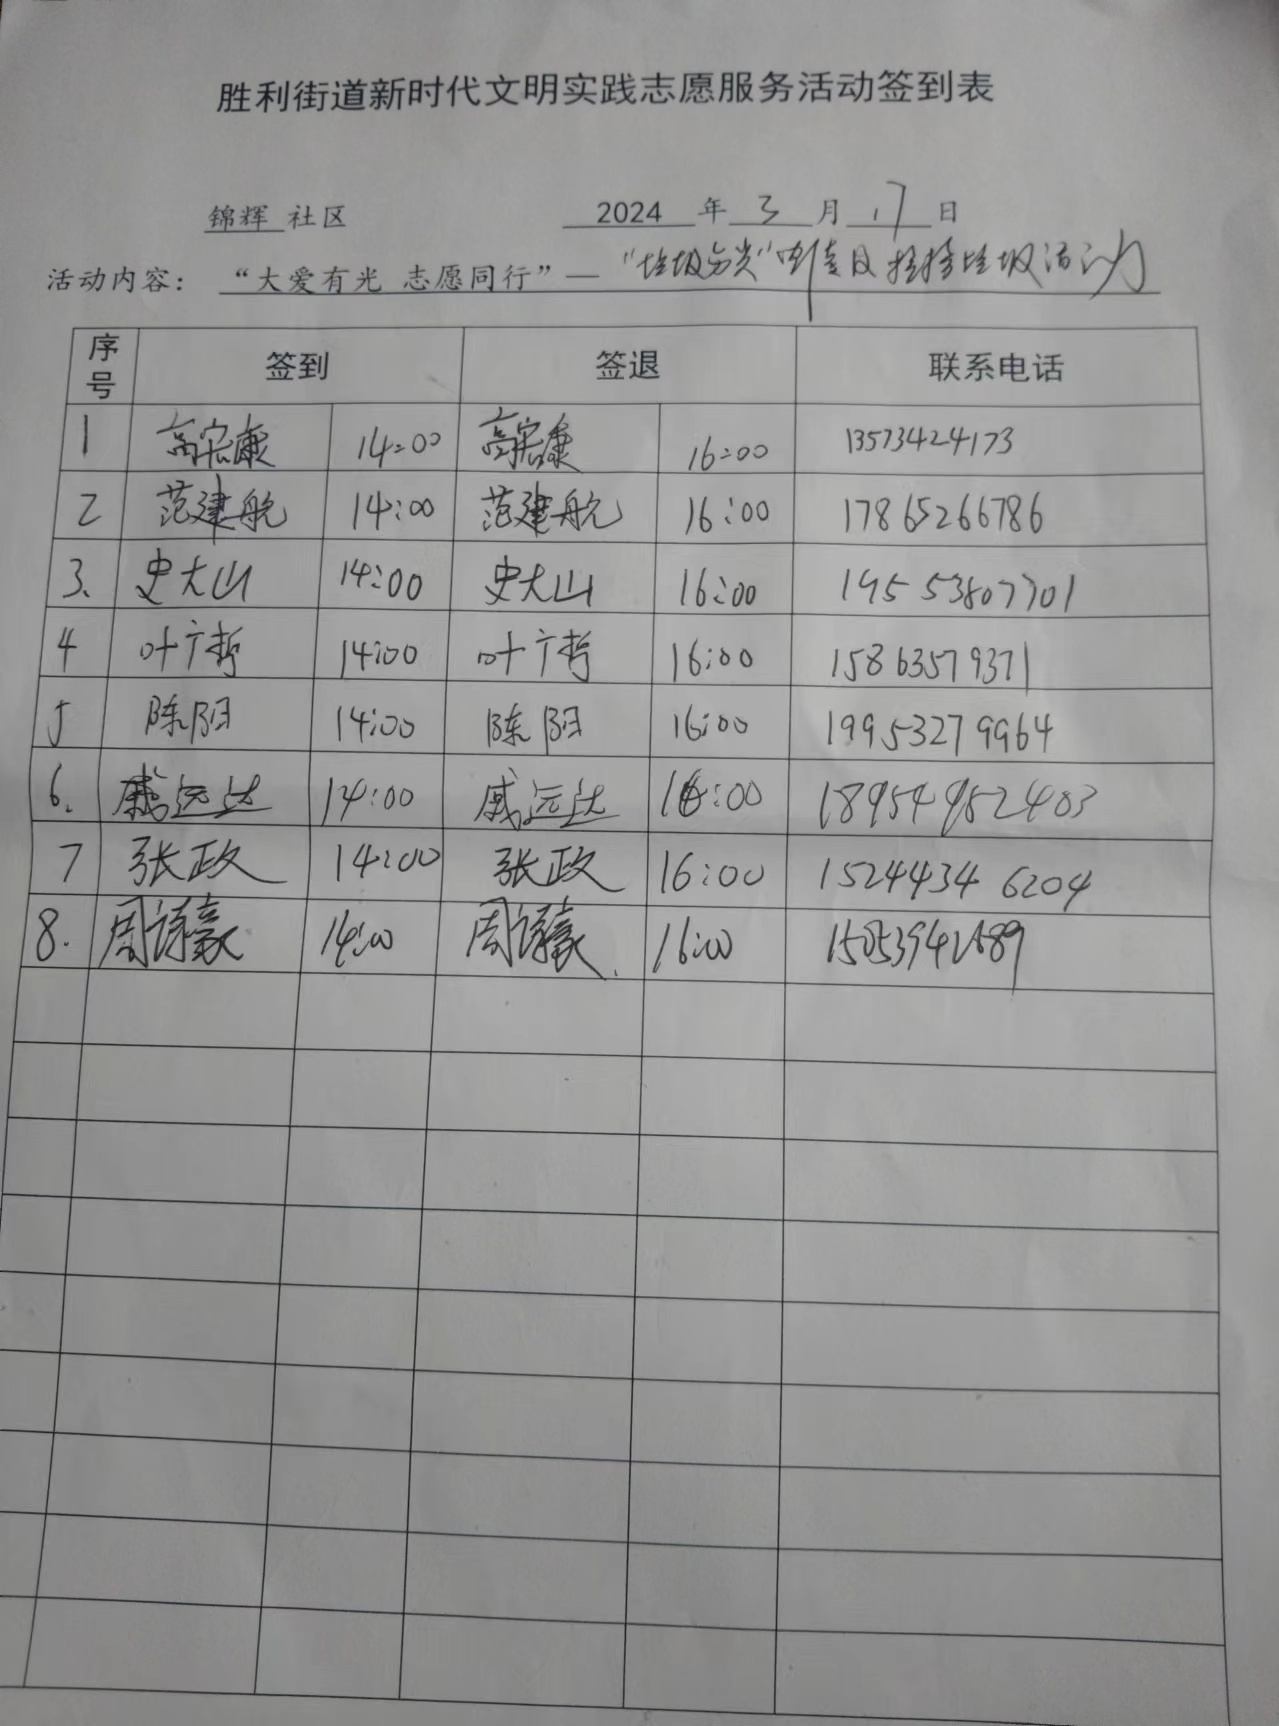 胜利街道新时代文明实践志愿服务活动签到表
锦辉 社区 2024 年 3 月 17 日
活动内容： “大爱有光 志愿同行”— “垃圾分类”宣传及捡拾垃圾活动
序号 签到 签退 联系电话
1 高宏康 14:00 高宏康 16:00 13573424173
2 范建航 14:00 范建航 16:00 17865266786
3. 史大山 14:00 史大山 16:00 19553807701
4 叶广哲 14:00 叶广哲 16:00 15863579371
5 陈阳 14:00 陈阳 16:00 19953279964
6. 戚远达 14:00 戚远达 16:00 18954952403
7 张政 14:00 张政 16:00 15244346204
8. 周谆豪 14:00 周谆豪 16:00